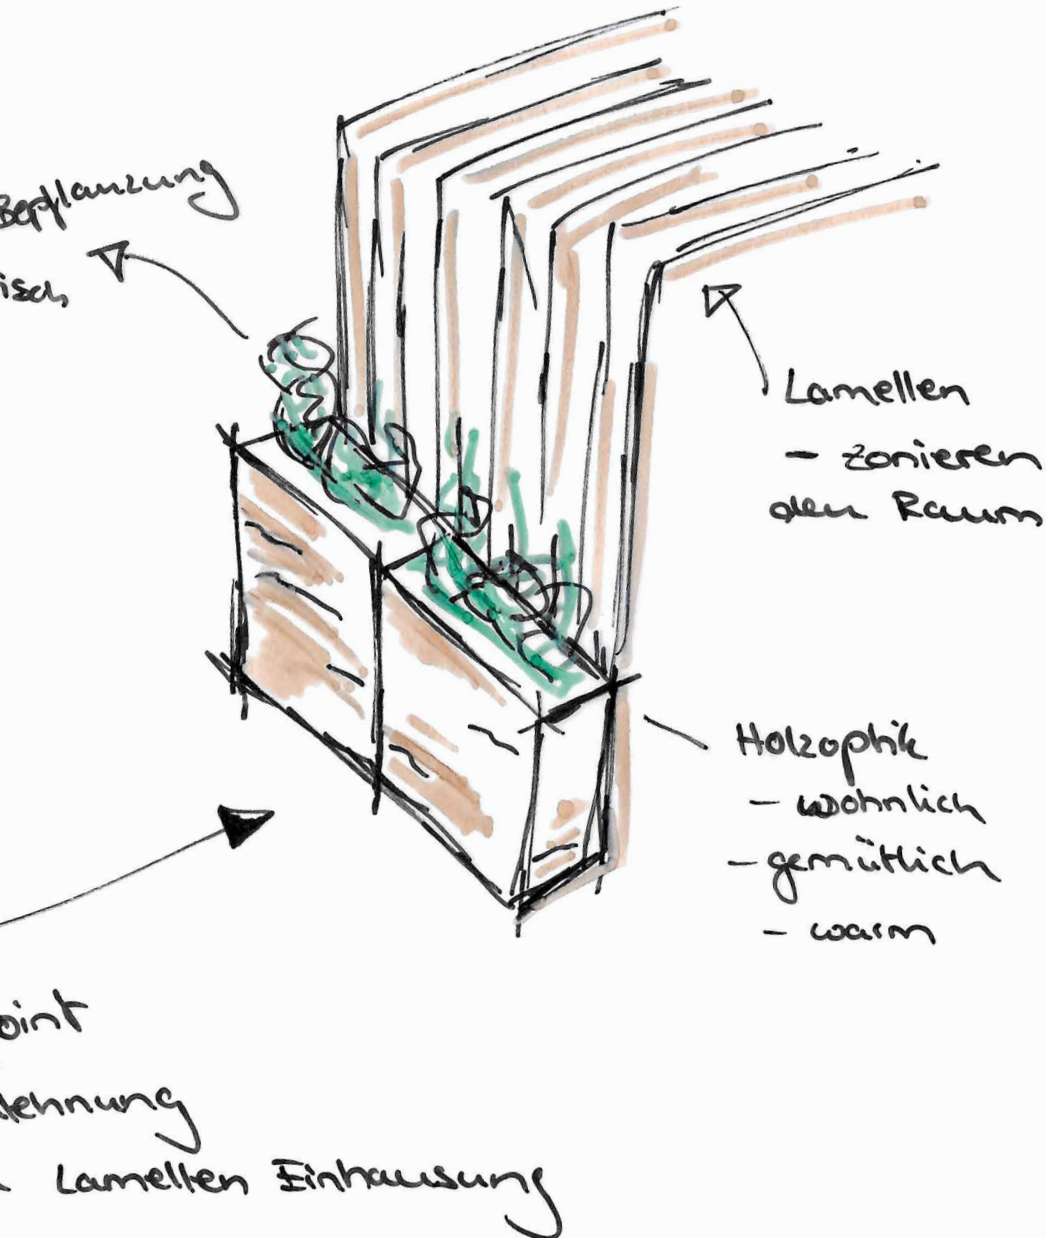 Bepflanzung
isch
Lamellen
- zonieren
den Raum
Holzoptik
- wohnlich
- gemütlich
- warm
oint
lehnung
Lamellen Einhausung